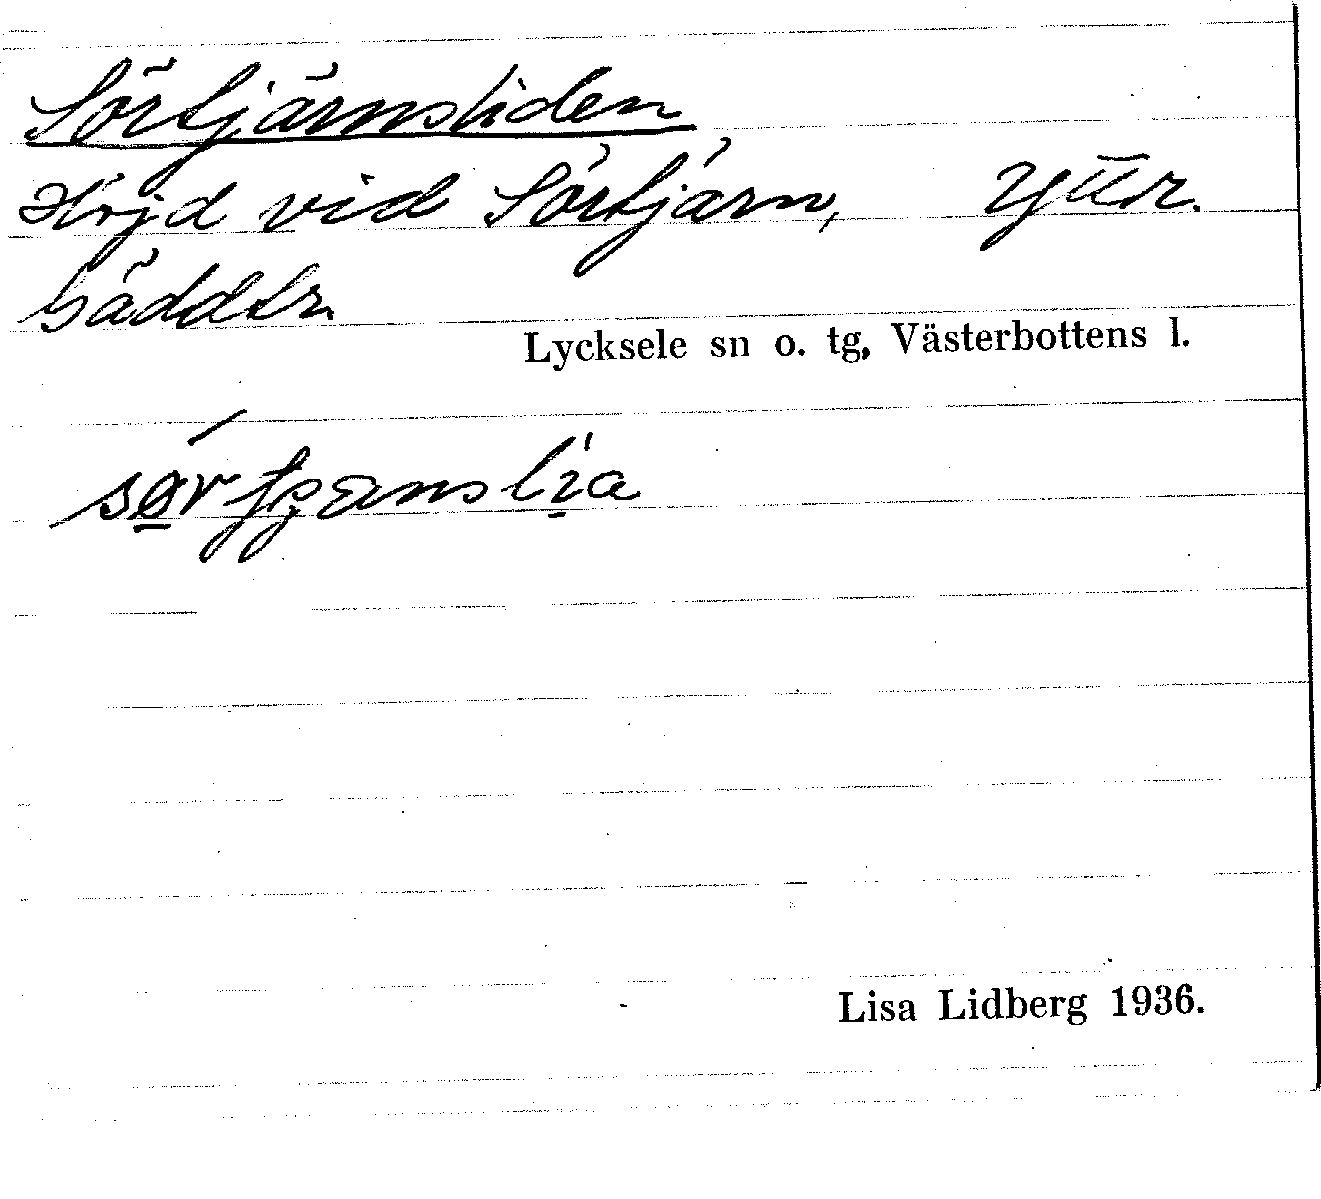 Sörtjärnsliden
Höjd vid Sörtjärn, Yttr.
bäddtr.
Lycksele sn o. tg, Västerbottens l.
Lisa Lidberg 1936.